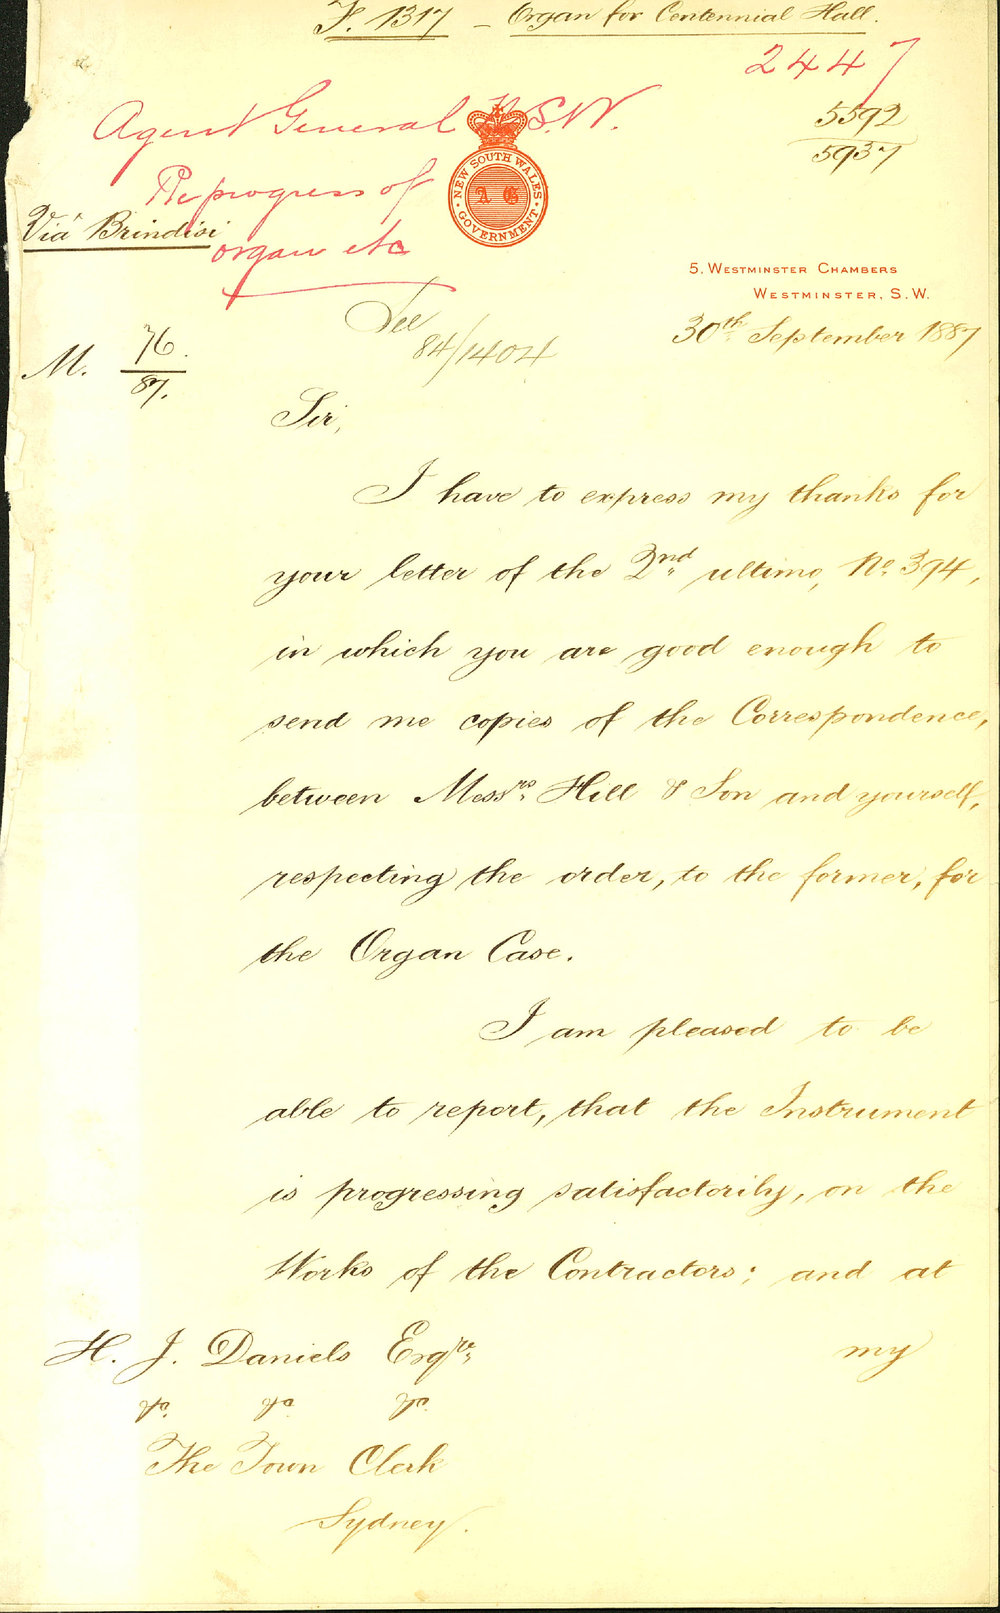 F. 1317 – Organ for Centennial Hall.
2447
5592
5937
Agent General N.S.W.
Re progress of
organ etc
Viâ Brindisi
NEW SOUTH WALES
A G
GOVERNMENT
5, WESTMINSTER CHAMBERS
WESTMINSTER, S.W.
30th September 1887
See
84/1404
M. 76/87.
Sir,
I have to express my thanks for
your letter of the 2nd ultimo, No. 394,
in which you are good enough to
send me copies of the Correspondence,
between Messrs. Hill & Son and yourself,
respecting the order, to the former, for
the Organ Case.
I am pleased to be
able to report, that the Instrument
is progressing satisfactorily, on the
Works of the Contractors; and at
my
H. J. Daniels Esqre.
&c. &c. &c.
The Town Clerk
Sydney.